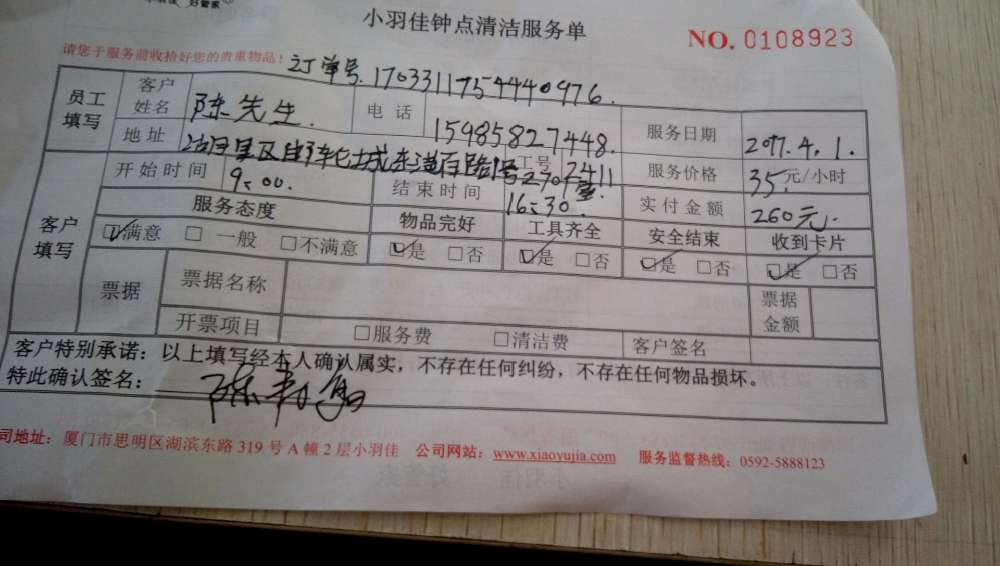 好管家
小羽佳钟点清洁服务单
NO. 0108923
请您于服务前收拾好您的贵重物品!
订单号.17033117544440976.
员工填写 客户姓名 陈先生. 电话 15985827448. 服务日期 2017.4.1.
地址 工号 2411 服务价格 35元/小时
客户填写 开始时间 9:00. 结束时间 16:30. 实付金额 260元
服务态度 物品完好 工具齐全 安全结束 收到卡片
☑满意 □ 一般 □不满意 ☑是 □否 ☑是 □否 ☑是 □否 ☑是 □否
票据 票据名称 票据金额
开票项目 □服务费 □清洁费 客户签名
客户特别承诺:以上填写经本人确认属实,不存在任何纠纷,不存在任何物品损坏。
特此确认签名:
司地址:厦门市思明区湖滨东路 319 号 A 幢 2 层小羽佳 公司网站:www.xiaoyujia.com 服务监督热线:0592-5888123